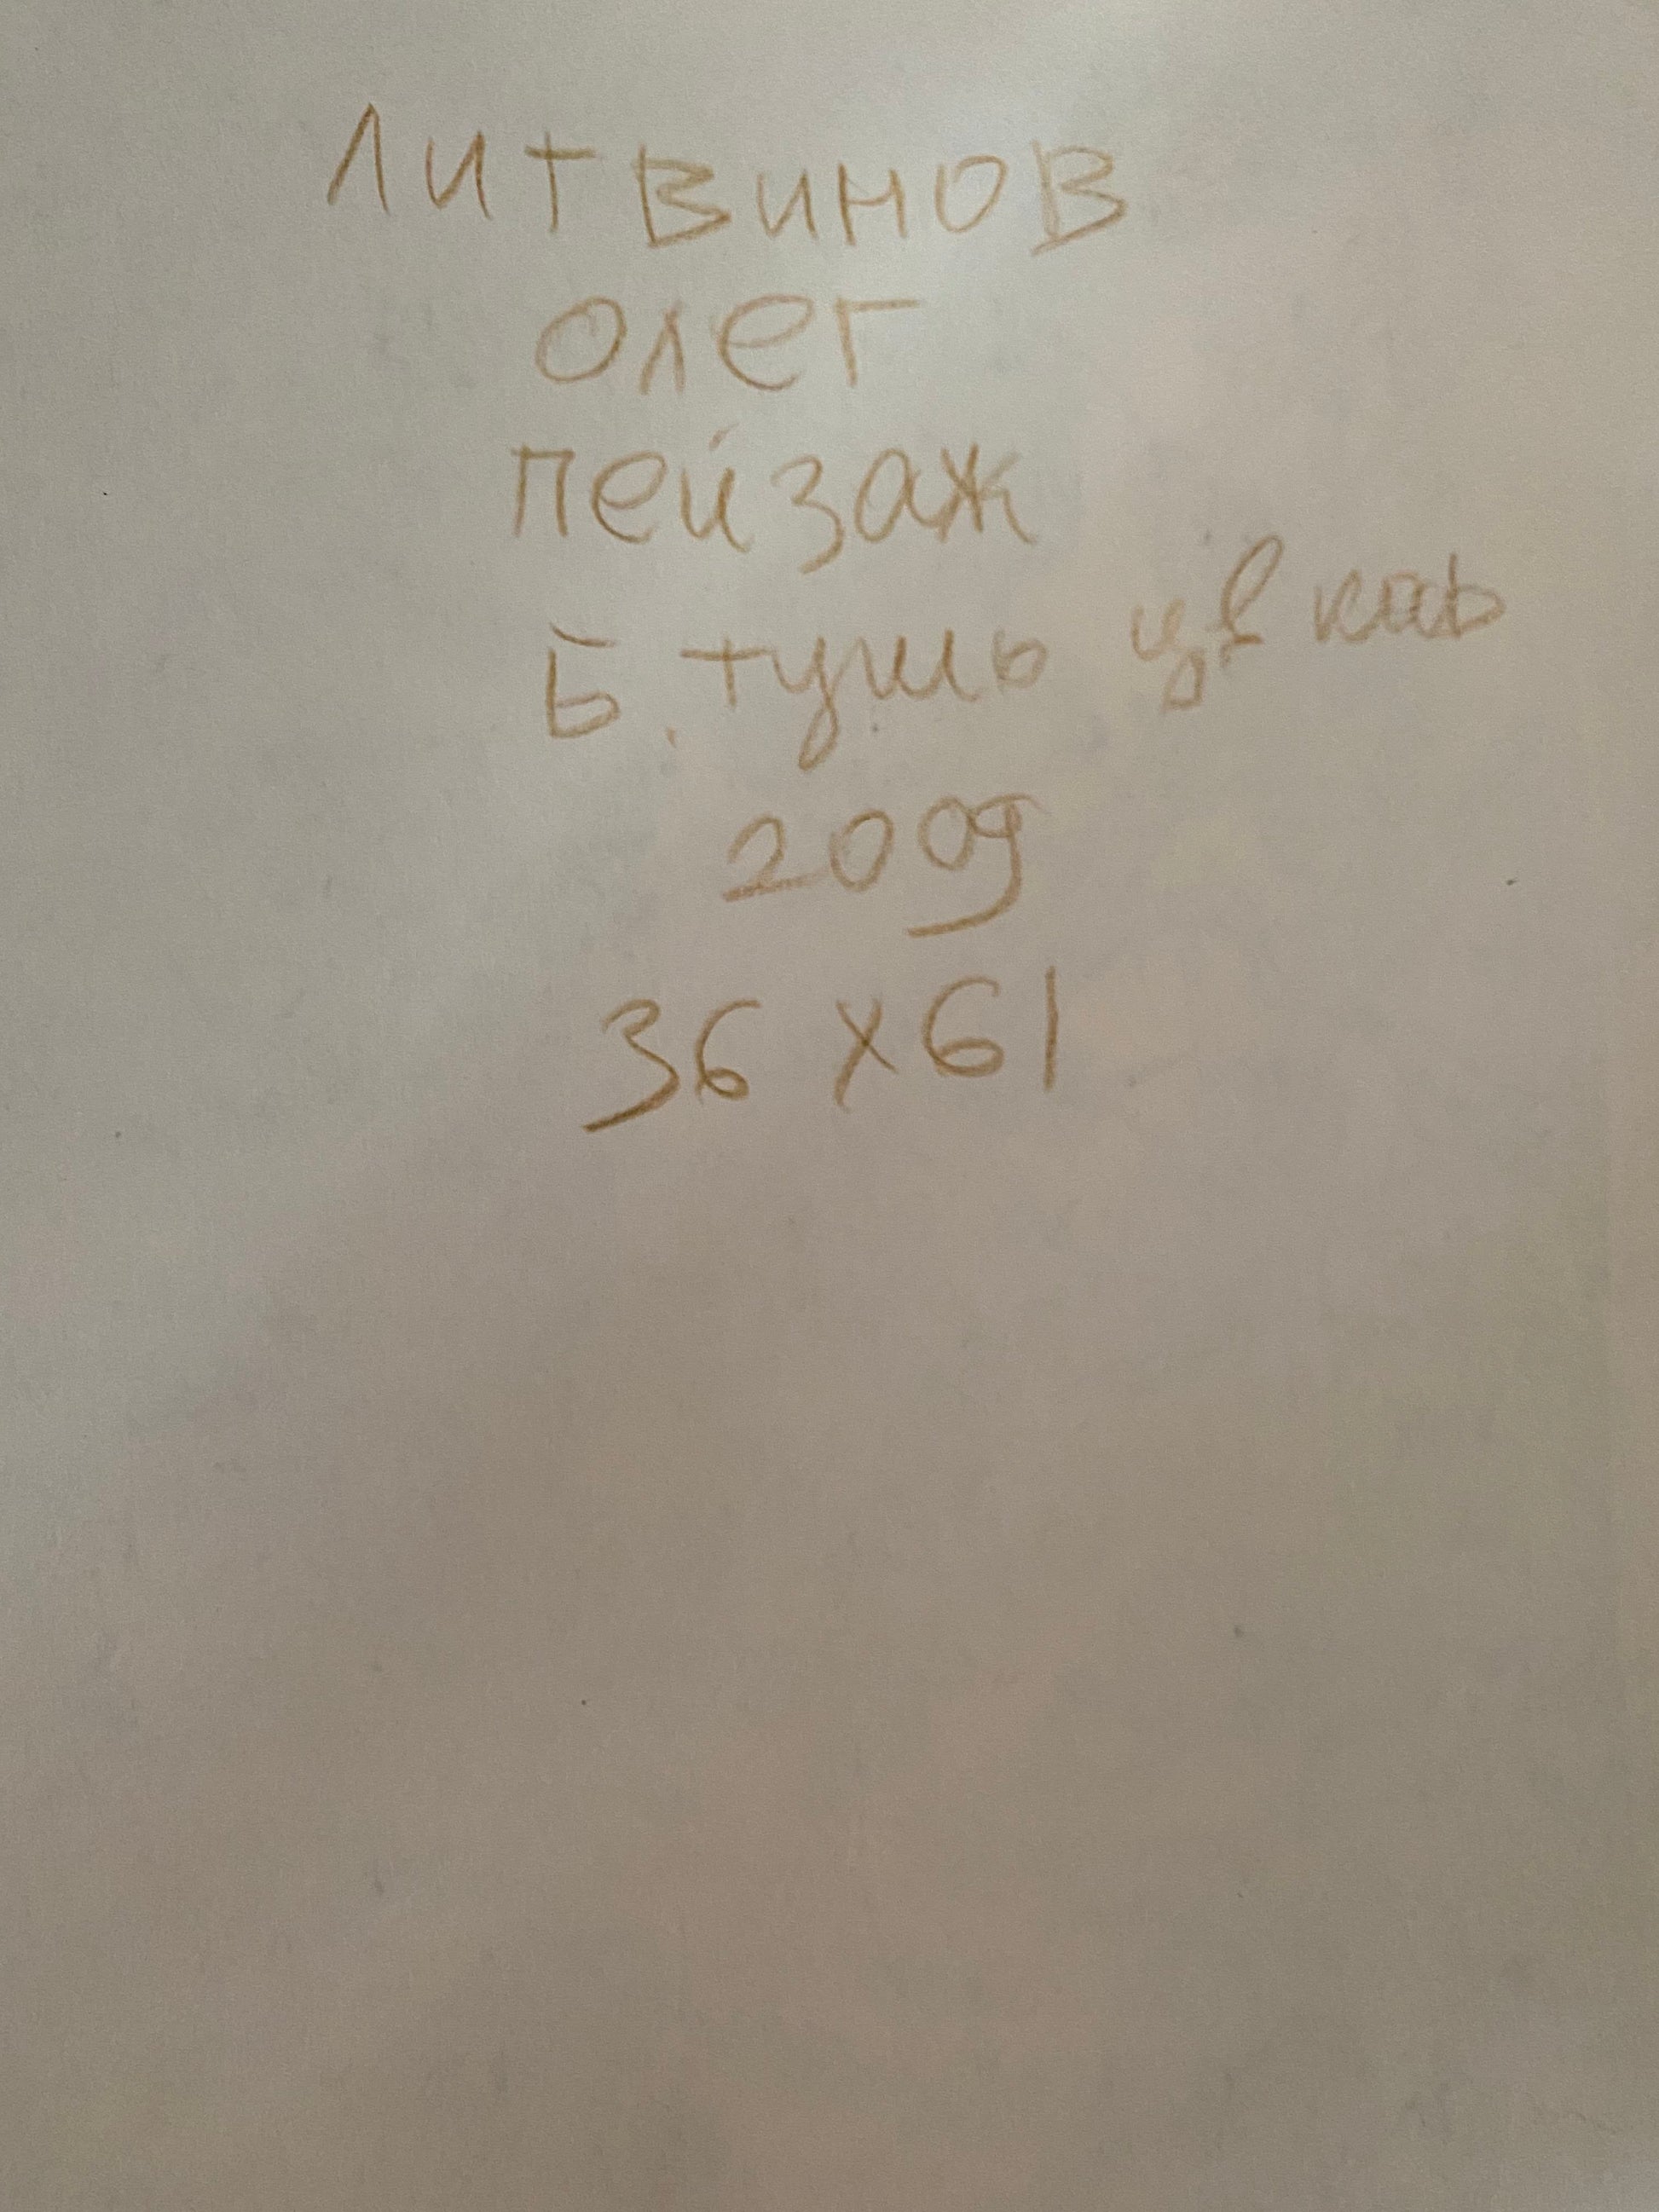 ЛИТВИНОВ
ОЛЕГ
ПЕЙЗАЖ
Б. тушь цв
2009
36 х 61